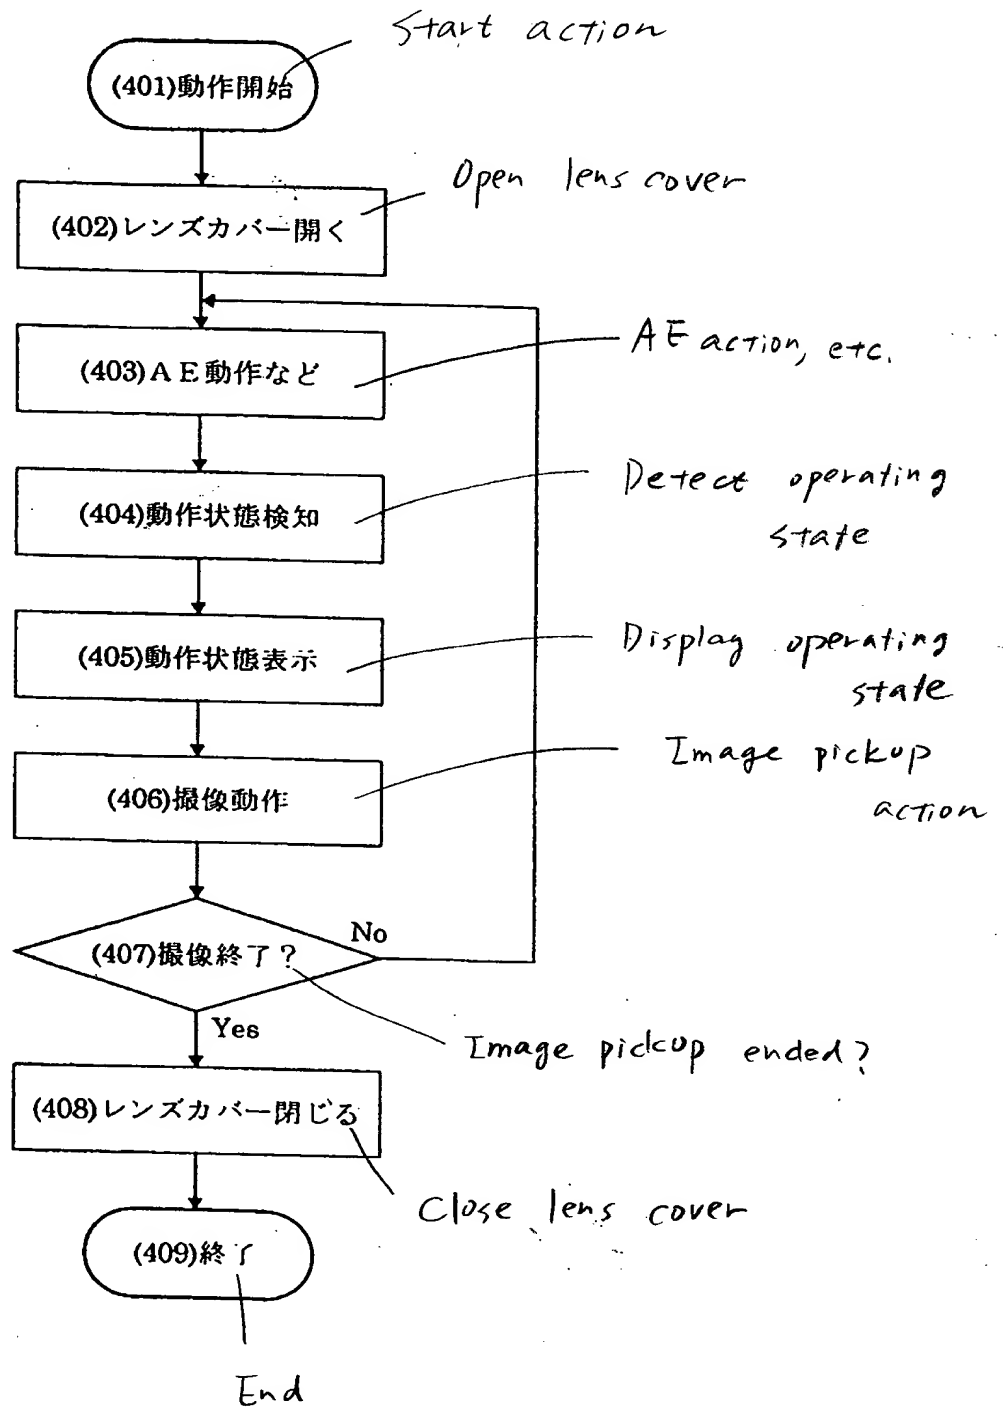 Start action
(401)動作開始
Open lens cover
(402)レンズカバー開く
AE action, etc.
(403)AE動作など
Detect operating
state
(404)動作状態検知
Display operating
state
(405)動作状態表示
Image pickup
action
(406)撮像動作
No
(407)撮像終了?
Yes
Image pickup ended?
(408)レンズカバー閉じる
Close lens cover
(409)終了
End